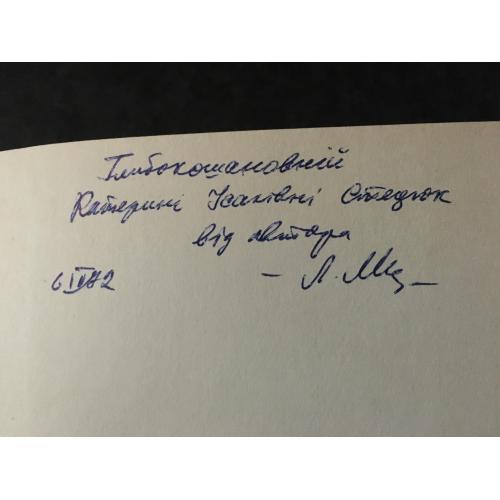 Глибокошановній
Катерині Ісаківні Стецюк
від автора
6 IV 72 – Л. Мах –